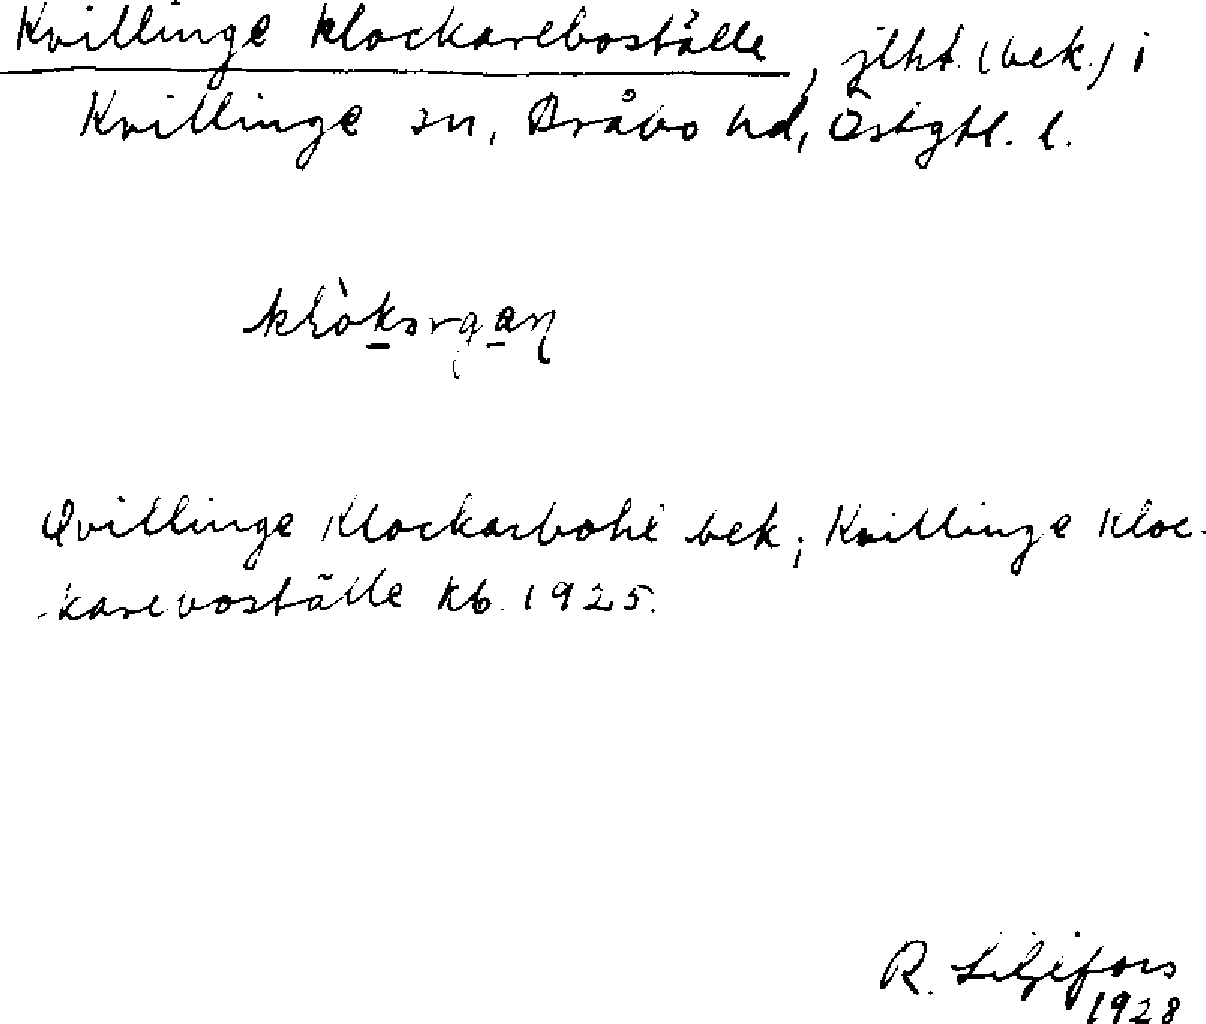 Kvillinge klockareboställe, jlht. (bek.) i
Kvillinge sn, Bråbo hd, Östgtl. l.
Qvillinge Klockarbohl bek; Kvillinge Kloc-
kareboställe Kb. 1925.
R. Liljefors
1928